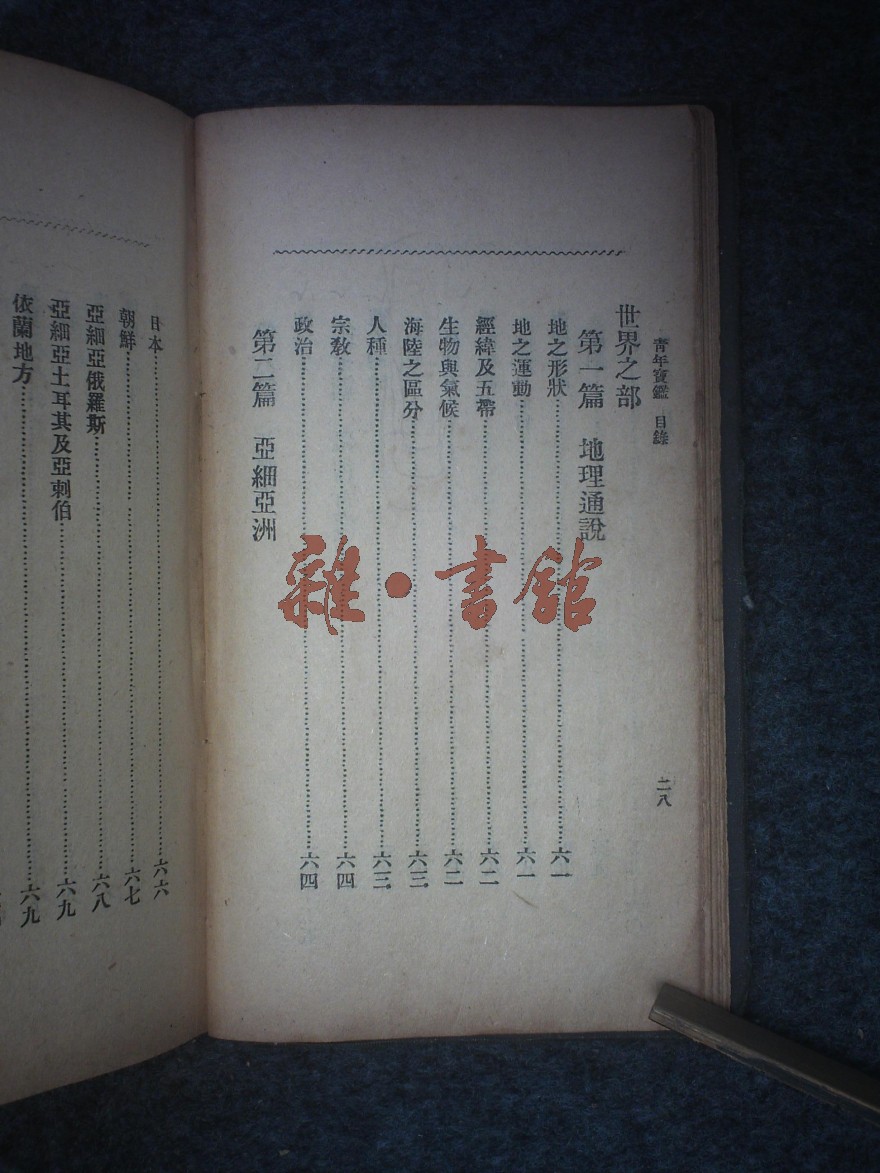 青年寶鑑 目錄
二八
世界之部
第一篇 地理通說
地之形狀……六一
地之運動……六一
經緯及五帶……六二
生物與氣候……六二
海陸之區分……六三
人種……六三
宗教……六四
政治……六四
第二篇 亞細亞洲
日本……六六
朝鮮……六七
亞細亞俄羅斯……六八
亞細亞土耳其及亞剌伯……六九
依蘭地方……六九
雜·書館